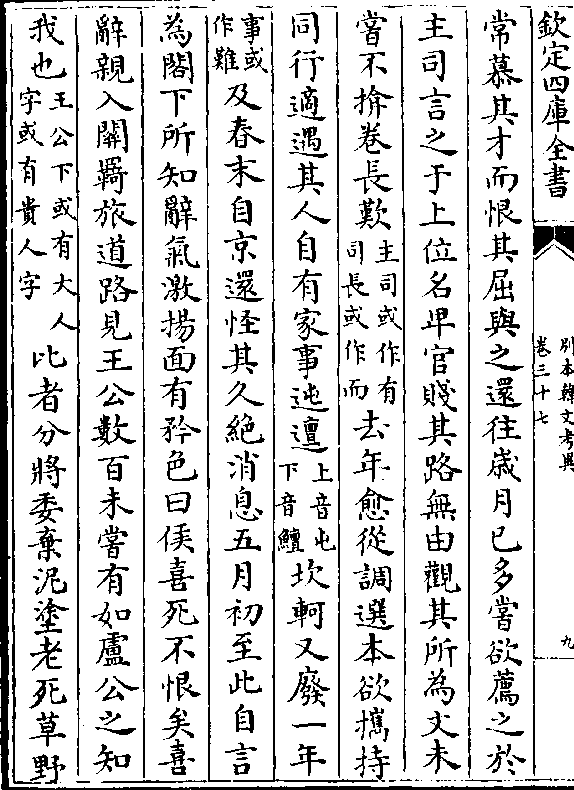 欽定四庫全書
別本韓文考異
卷三十七
九
常慕其才而恨其屈與之還往歲月已多嘗欲薦之於
主司言之于上位名卑官賤其路無由觀其所為文未
嘗不揜卷長歎主司或作有司長或作而去年愈從調選本欲攜持
同行適遇其人自有家事迍邅上音屯下音鱣坎軻又廢一年
事或作難及春末自京還怪其久絶消息五月初至此自言
為閣下所知辭氣激揚面有矜色曰侯喜死不恨矣喜
辭親入關羇旅道路見王公數百未嘗有如盧公之知
我也王公下或有大人字或有貴人字比者分將委棄泥塗老死草野